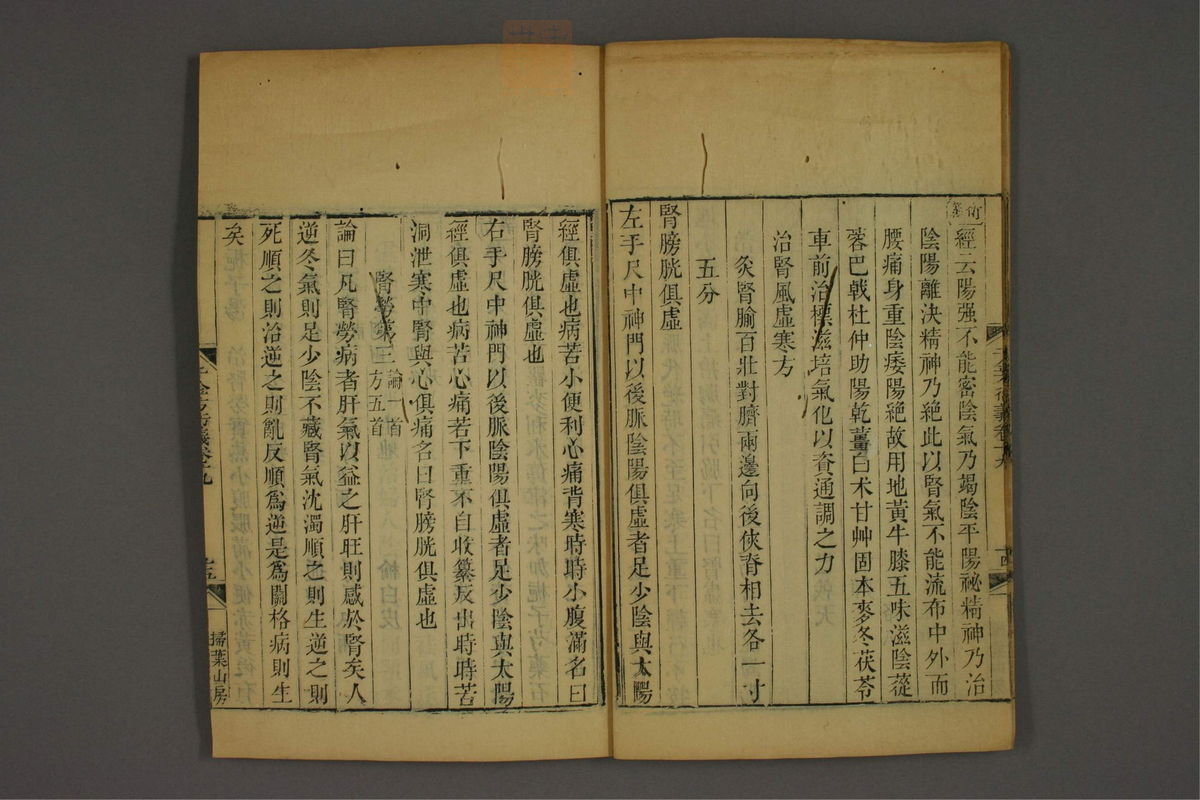 衍義 經云陽强不能密陰氣乃竭陰平陽祕精神乃治
陰陽離決精神乃絶此以腎氣不能流布中外而
腰痛身重陰痿陽絶故用地黃牛膝五味滋陰蓯
蓉巴戟杜仲助陽乾薑白朮甘艸固本麥冬茯苓
車前治標滋培氣化以資通調之力
治腎風虛寒方
灸腎腧百壯對臍兩邊向後俠脊相去各一寸
五分
腎膀胱俱虛
左手尺中神門以後脈陰陽俱虛者足少陰與太陽
經俱虛也病苦小便利心痛背寒時時小腹滿名曰
腎膀胱俱虛也
右手尺中神門以後脈陰陽俱虛者足少陰與太陽
經俱虛也病苦心痛若下重不自收纂反出時時苦
洞泄寒中腎與心俱痛名曰腎膀胱俱虛也
腎勞第三 論一首 方五首
論曰凡腎勞病者肝氣以益之肝旺則感於腎矣人
逆冬氣則足少陰不藏腎氣沈濁順之則生逆之則
死順之則治逆之則亂反順爲逆是爲關格病則生
矣
掃葉山房